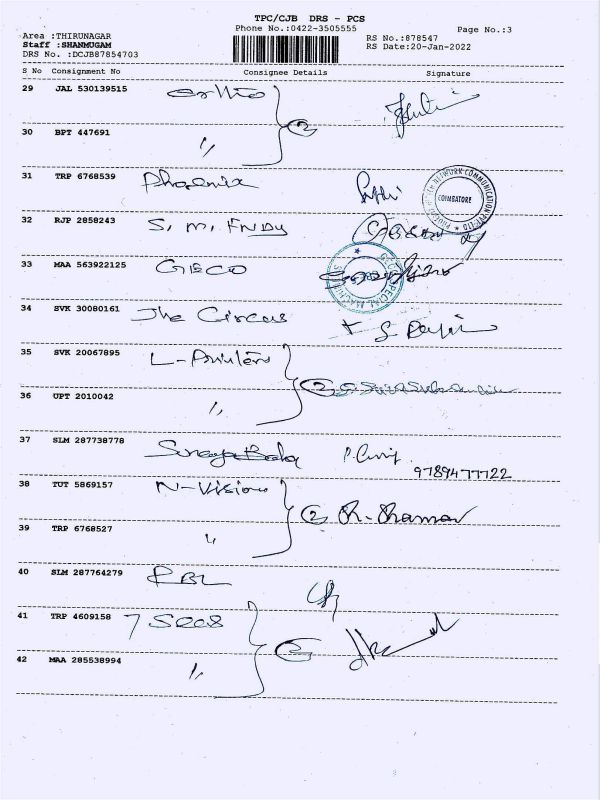 TPC/CJB DRS - PCS
Phone No.:0422-3505555
Page No.:3
Area :THIRUNAGAR
RS No.:878547
Staff :SHANMUGAM
RS Date:20-Jan-2022
DRS No. :DCJB87854703
S No Consignment No Consignee Details Signature
29 JAL 530139515 Ortho
30 BPT 447691 "
2
31 TRP 6768539 Phoenix
COIMBATORE
32 RJP 2858243 S. M. FNDY
33 MAA 563922125 GIECO
34 SVK 30080161 The Circus
35 SVK 20067895 L-Printers
36 UPT 2010042 "
2
37 SLM 287738778
9789477722
38 TUT 5869157 N-Vision
39 TRP 6768527 "
2 R. Raman
40 SLM 287764279 RBL
41 TRP 4609158 7 Seas
42 MAA 285538994 "
2